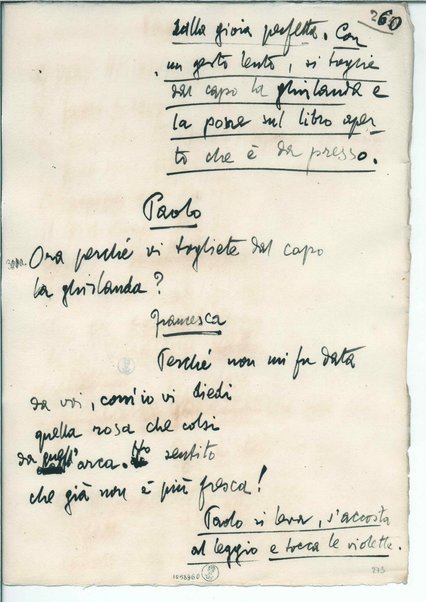 260
dalla gioia perfetta. Con
un gesto lento, si toglie
dal capo la ghirlanda e
la posa sul libro aper-
to che è da presso.
Paolo
3000. Ora perché vi togliete dal capo
la ghirlanda?
Francesca
Perché non mi fu data
da voi, com'io vi diedi
quella rosa che colsi
da quell'arca. Ho sentito
che già non è più fresca!
Paolo si leva, s'accosta
al leggio e tocca le violette.
1058960
273